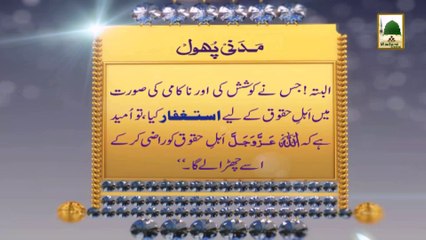 مدنی پھول
البتہ! جس نے کوشش کی اور ناکامی کی صورت
میں اہلِ حقوق کے لیے استغفار کیا، تو اُمید
ہے کہ اللہ عَزَّوَجَلَّ اہلِ حقوق کو راضی کر کے
اسے چھڑا لے گا۔‘‘